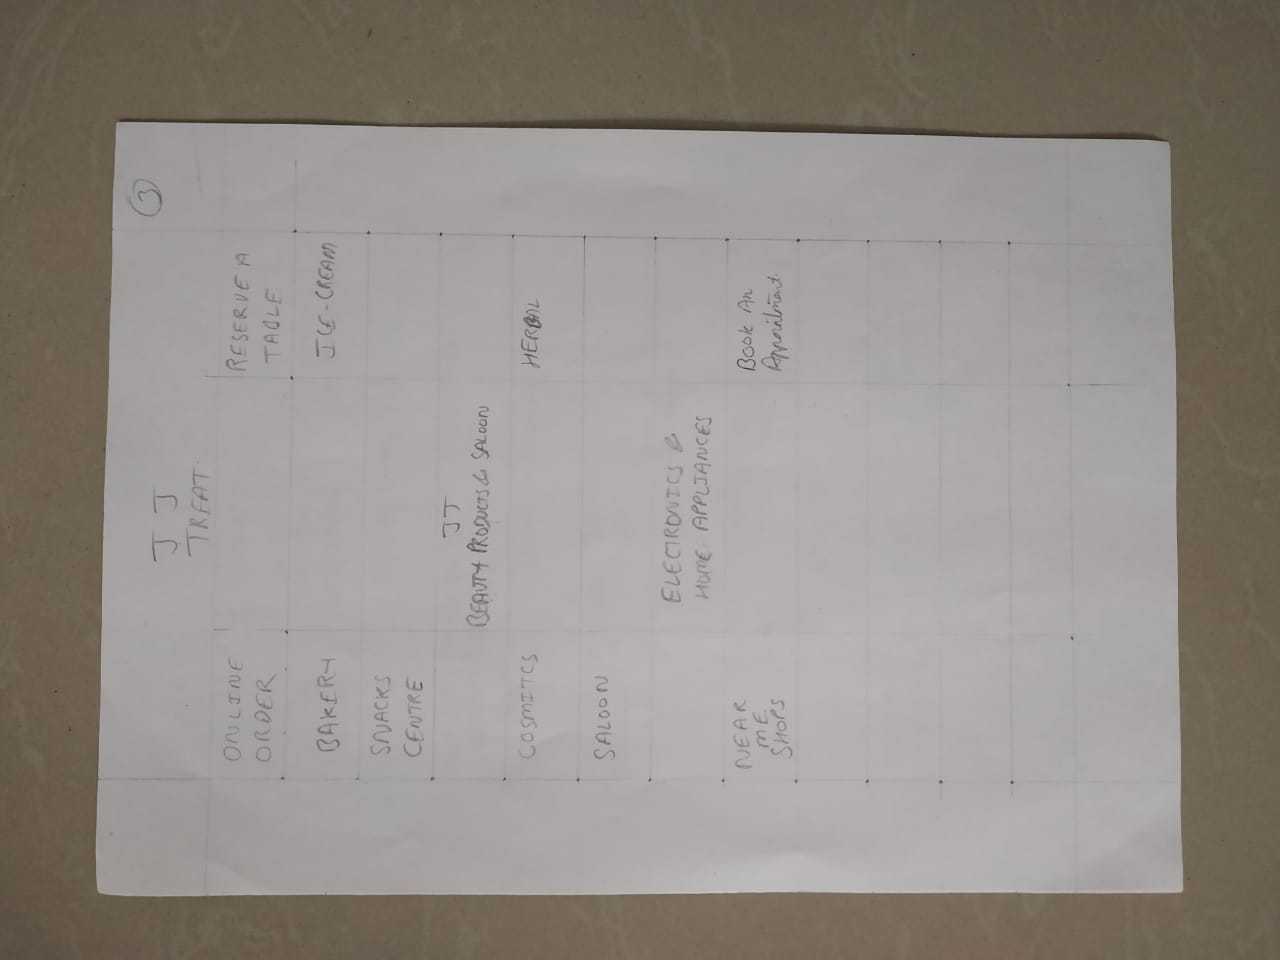 3
J J
TREAT
ONLINE
ORDER
RESERVE A
TABLE
BAKERY
ICE-CREAM
SNACKS
CENTRE
JJ
BEAUTY PRODUCTS & SALOON
COSMITCS
HERBAL
SALOON
ELECTRONICS &
HOME APPLIANCES
NEAR
ME
SHOPS
Book An
Appointment